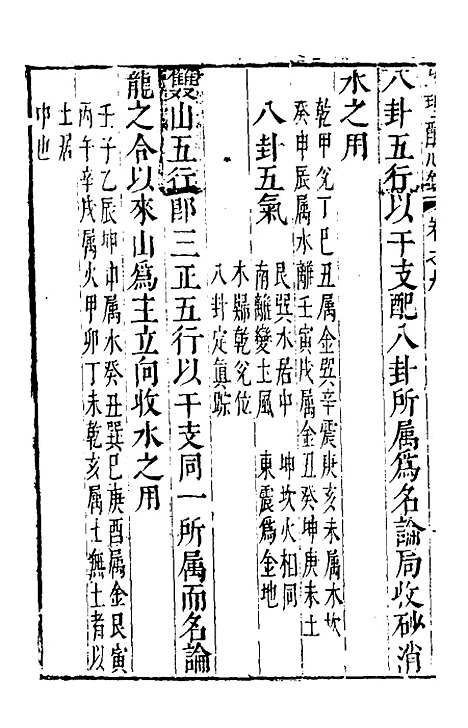 八卦五行以干支配八卦所属爲名論局收砂消
水之用
乾甲兊丁巳丑属金巽辛震庚亥未属木坎
癸申辰属水離壬寅戌属金丑癸坤庚未土
八卦五氣
艮巽木居中　坤坎火相同
南離變土風　東震爲金地
木縣乾兊位
八卦定眞踪
雙山五行即三正五行以干支同一所属而名論
龍之合以來山爲主立向收水之用
壬子乙辰坤申属水癸丑巽巳庚酉属金艮寅
丙午辛戌属火甲卯丁未乾亥属土無土者以
土居
中也